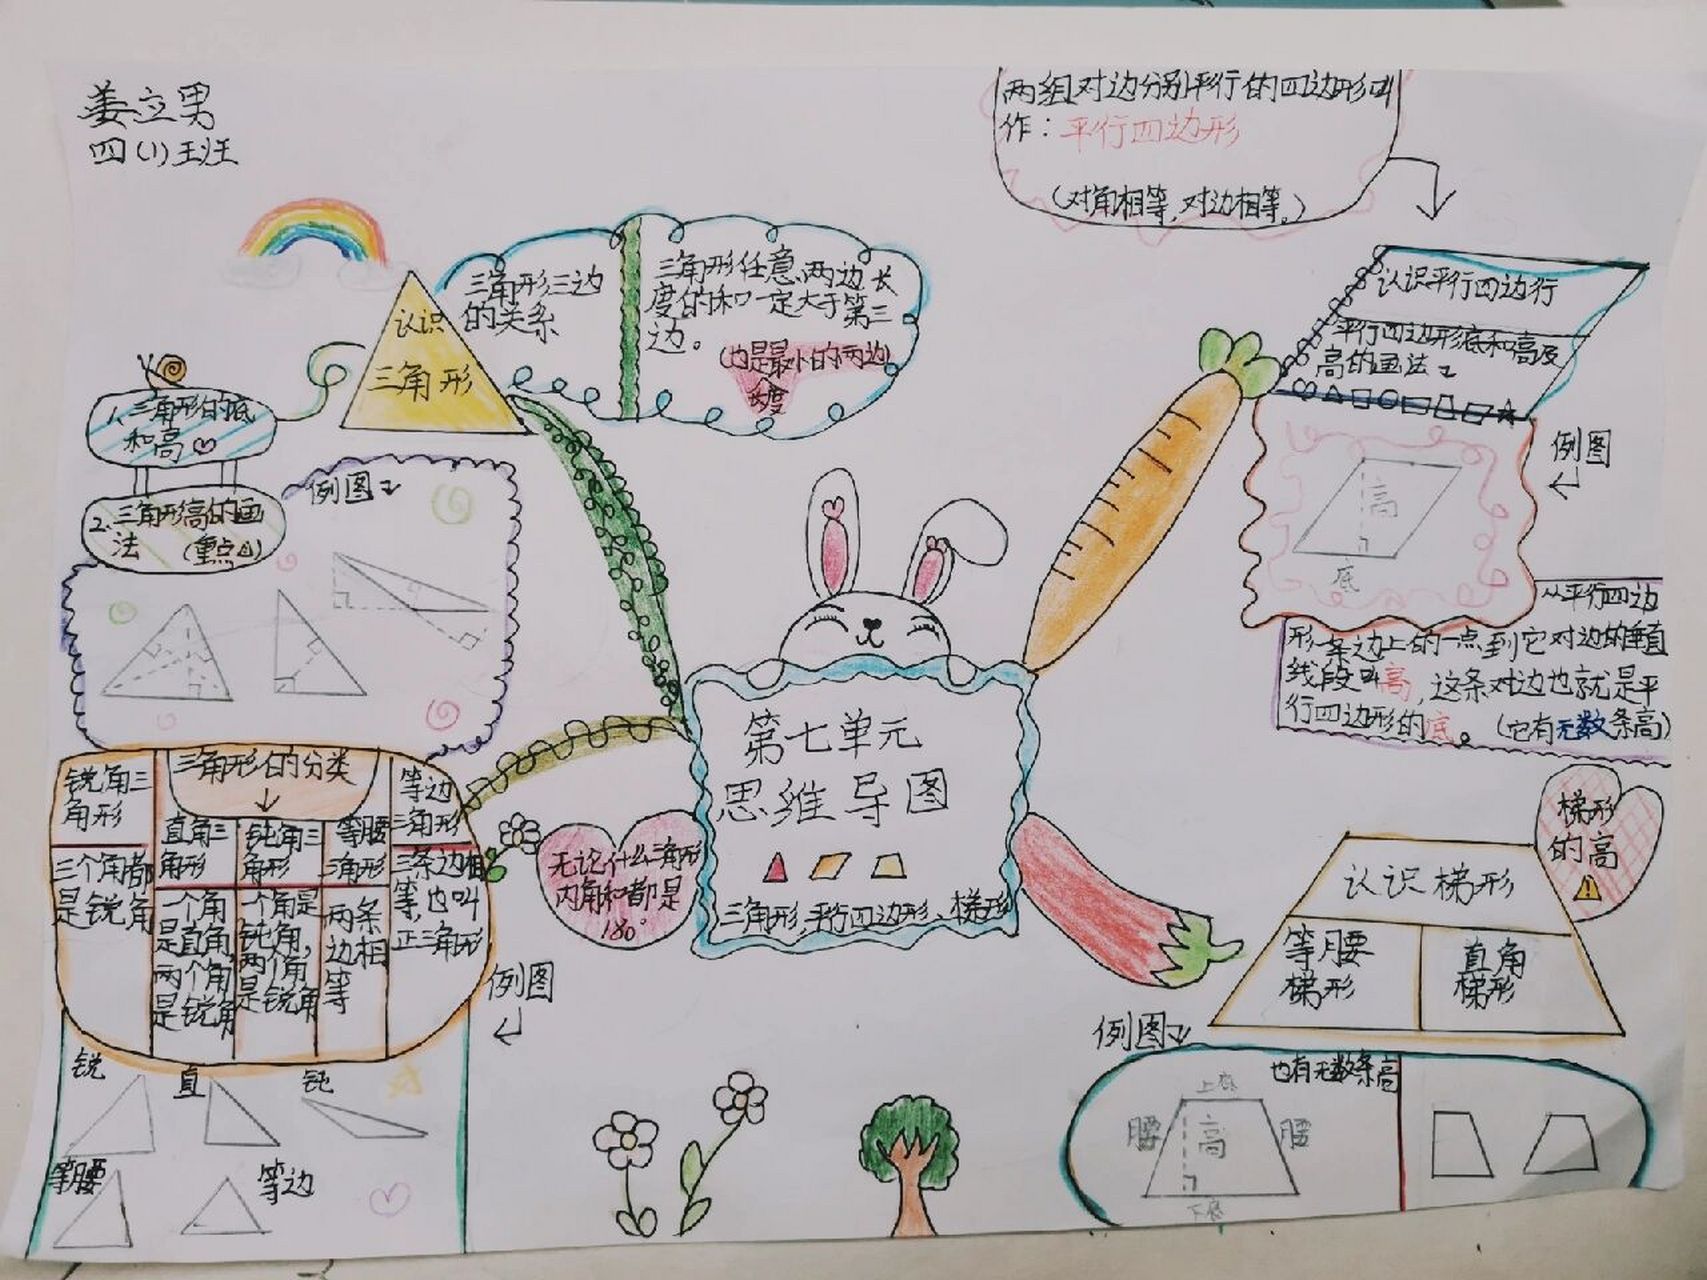 姜立男
四(1)班
两组对边分别平行的四边形叫
作：平行四边形
（对角相等，对边相等。）
认识
三角形
三角形三边
的关系
三角形任意两边长
度的和一定大于第三
边。
(也是最小的两边)
长度
1、三角形的底
和高
2、三角形高的画
法 （重点）
例图
认识平行四边行
平行四边形底和高及
高的画法
例图
高
底
从平行四边
形一条边上的一点到它对边的垂直
线段叫高，这条对边也就是平
行四边形的底。（它有无数条高）
第七单元
思维导图
三角形，平行四边形、梯形
三角形的分类
锐角三
角形
三个角都
是锐角
直角三
角形
一个角
是直角，
两个角
是锐角
钝角三
角形
一个角是
钝角，
两个角
是锐角
等腰
三角形
两条
边相
等
等边
三角形
三条边相
等，也叫
正三角形
无论什么三角形
内角和都是
180°
例图
锐
直
钝
等腰
等边
梯形
的高
认识梯形
等腰
梯形
直角
梯形
例图
也有无数条高
上底
腰
高
腰
下底